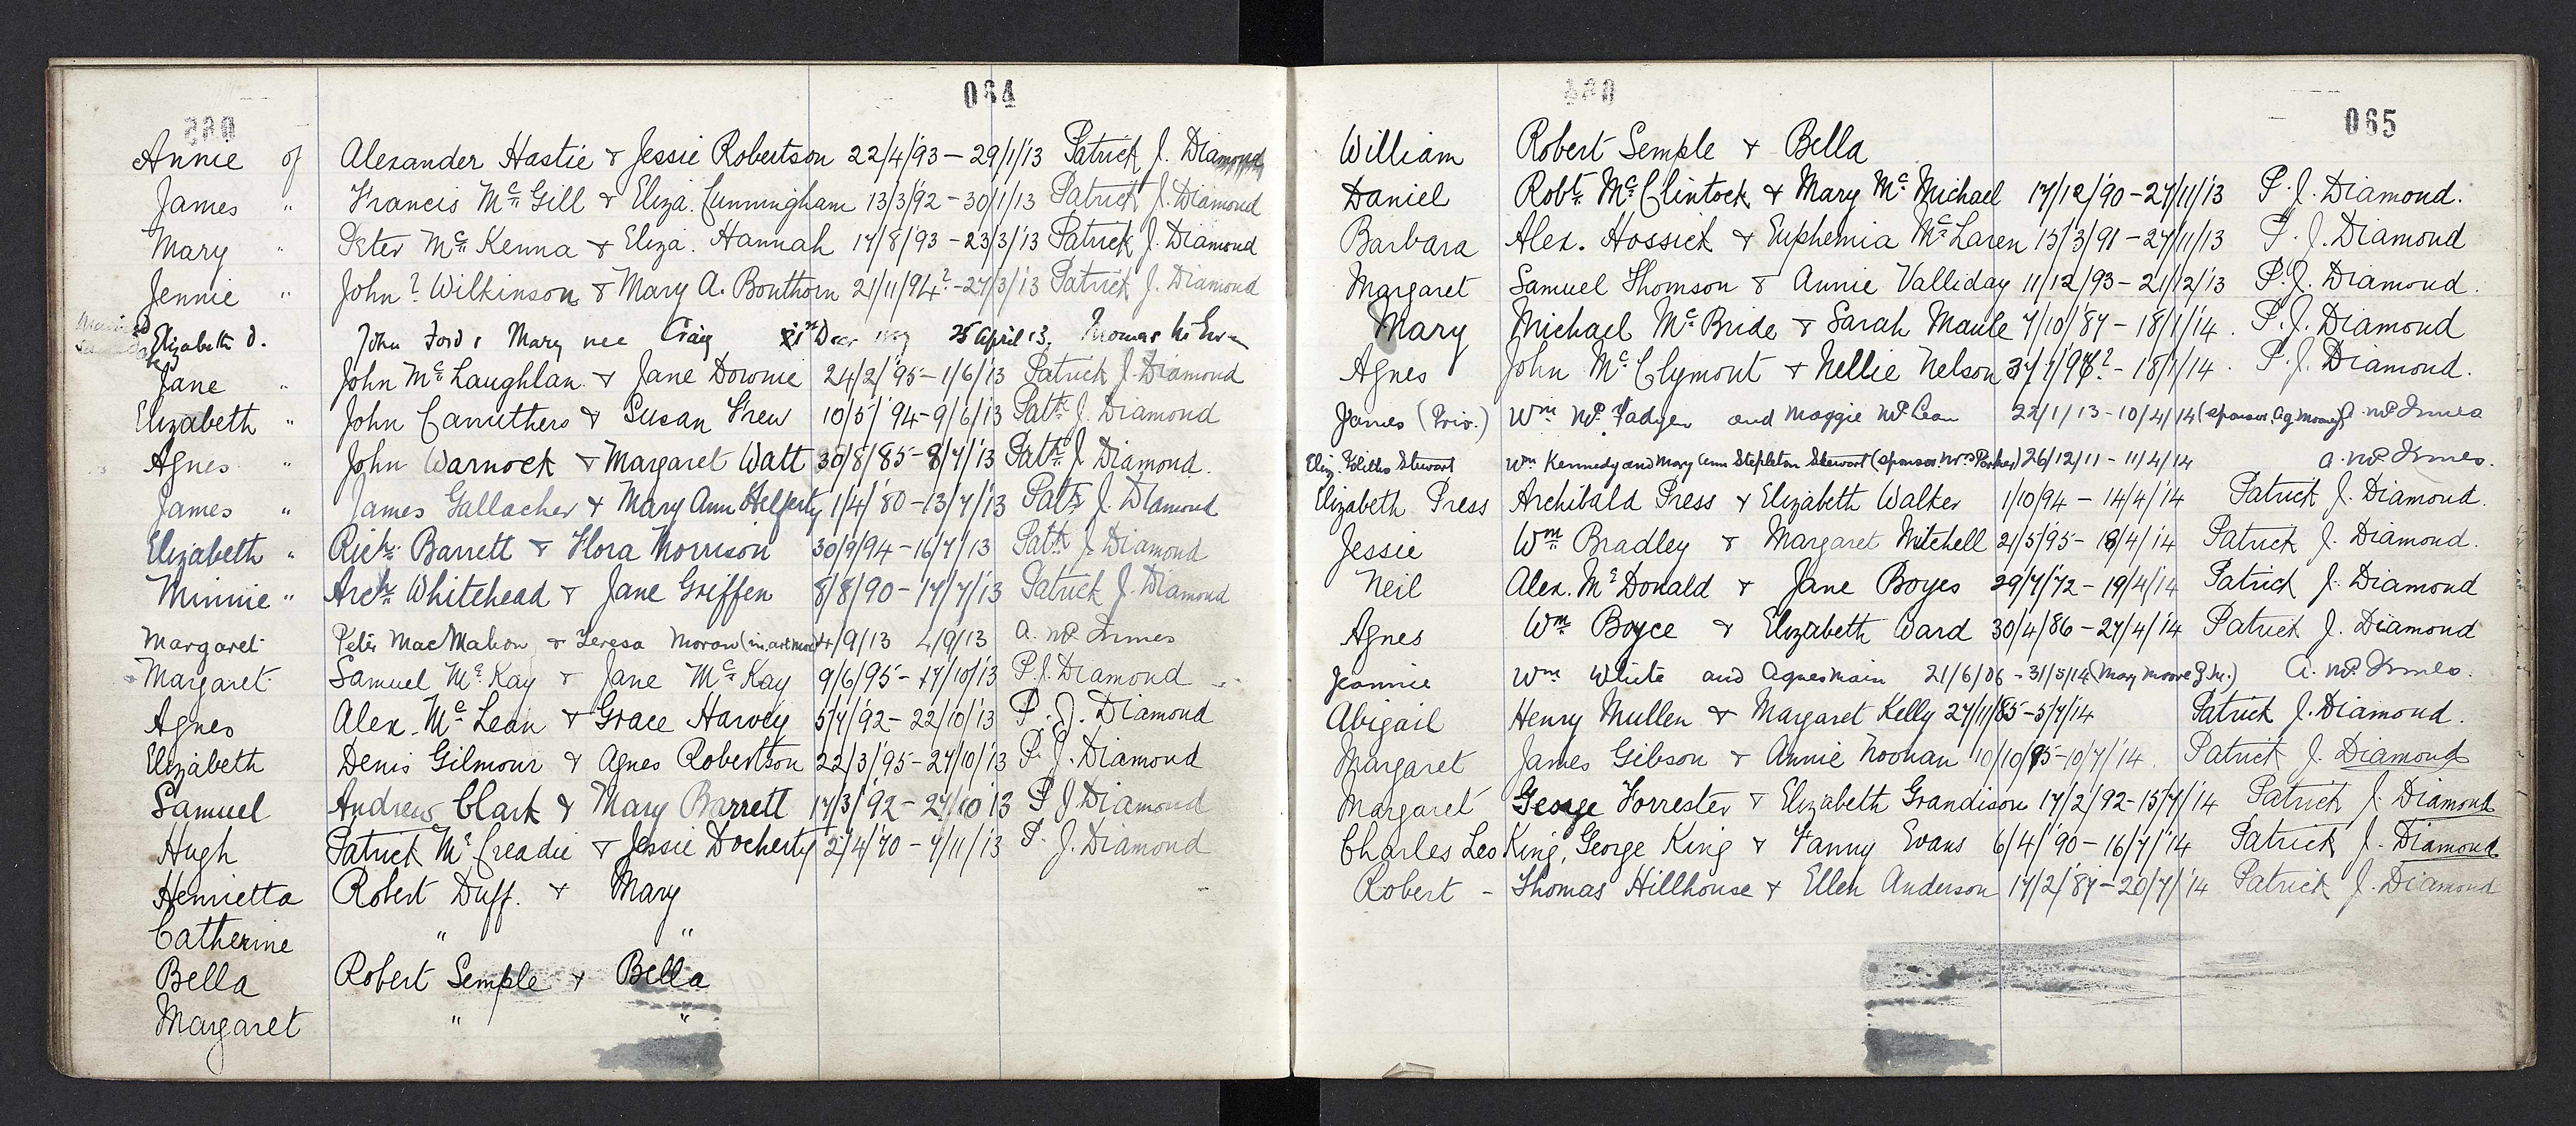 064
Annie of Alexander Hastie & Jessie Robertson 22/4/93 – 29/1/13 Patrick J. Diamond
James " Francis McGill & Eliza. Cunningham 13/3/92 – 30/1/13 Patrick J. Diamond
Mary " Peter McKenna & Eliza. Hannah 17/8/93 – 23/3/13 Patrick J. Diamond
Jennie " John? Wilkinson & Mary A. Bonthorn 21/11/94? – 27/3/13 Patrick J. Diamond
Elizabeth d. John Ford & Mary nee Craig Decr 25 April 13, Thomas
Jane " John McLaughlan & Jane Downie 24/2/'95 – 1/6/13 Patrick J. Diamond
Elizabeth " John Carruthers & Susan Frew 10/5/'94 – 9/6/13 Patk J. Diamond
Agnes " John Warnock & Margaret Watt 30/8/85 – 8/7/13 Patk J. Diamond.
James " James Gallacher & Mary Ann Helferty 1/4/'80 – 13/7/13 Patk J. Diamond
Elizabeth " Richd Barrett & Flora Morrison 30/9/94 – 16/7/13 Patk J. Diamond
Minnie " Archd Whitehead & Jane Griffen 8/8/90 – 17/7/13 Patrick J. Diamond
Margaret Peter MacMahon & Teresa Moran (in. art. mort) 4/9/13 4/9/13 A. McInnes
Margaret Samuel McKay & Jane McKay 9/6/95 – 17/10/13 P. J. Diamond
Agnes Alex. McLean & Grace Harvey 5/7/92 – 22/10/13 P. J. Diamond
Elizabeth Denis Gilmour & Agnes Robertson 22/3/95 – 27/10/13 P. J. Diamond
Samuel Andrew Clark & Mary Barrett 17/3/'92 – 27/10/13 P J Diamond
Hugh Patrick McCreadie & Jessie Docherty 2/4/70 – 7/11/13 P. J. Diamond
Henrietta Robert Duff. & Mary
Catherine " "
Bella Robert Semple & Bella
Margaret " "
065
William Robert Semple & Bella
Daniel Robt. McClintock & Mary McMichael 17/12/90 – 27/11/13 P. J. Diamond.
Barbara Alex. Hossick & Euphemia McLaren 15/3/91 – 27/11/13 P. J. Diamond
Margaret Samuel Thomson & Annie Valliday 11/12/93 – 21/12/13 P. J. Diamond.
Mary Michael McBride & Sarah Maule 7/10/87 – 18/1/14. P. J. Diamond
Agnes John McClymont & Nellie Nelson – 18/1/14. P. J. Diamond.
James (Priv.) Wm McFadyen and Maggie McLean 22/1/13 – 10/4/14 (sponsor Ag. Mooney) A. McInnes
Eliz. Stewart Wm Kennedy and Mary Ann Stepleton Stewart (sponsor Mrs Parker) 26/12/11 – 11/4/14 A. McInnes.
Elizabeth Press Archibald Press & Elizabeth Walker 1/10/94 – 14/4/14 Patrick J. Diamond.
Jessie Wm Bradley & Margaret Mitchell 21/5/95 – 18/4/14 Patrick J. Diamond.
Neil Alex. McDonald & Jane Boyes 29/7/72 – 19/4/14 Patrick J. Diamond
Agnes Wm Boyce & Elizabeth Ward 30/4/86 – 27/4/14 Patrick J. Diamond
Jeannie Wm White and Agnes Main 21/6/06 – 31/5/14 (Mary Moore) A. McInnes.
Abigail Henry Mullen & Margaret Kelly 27/11/85 – 5/7/14 Patrick J. Diamond.
Margaret James Gibson & Annie Noonan 10/10/95 – 10/7/14. Patrick J. Diamond
Margaret George Forrester & Elizabeth Grandison 17/2/92 – 15/7/14 Patrick J. Diamond
Charles Leo King, George King & Fanny Evans 6/4/'90 – 16/7/'14 Patrick J. Diamond
Robert – Thomas Hillhouse & Ellen Anderson 17/2/'87 – 20/7/'14 Patrick J. Diamond